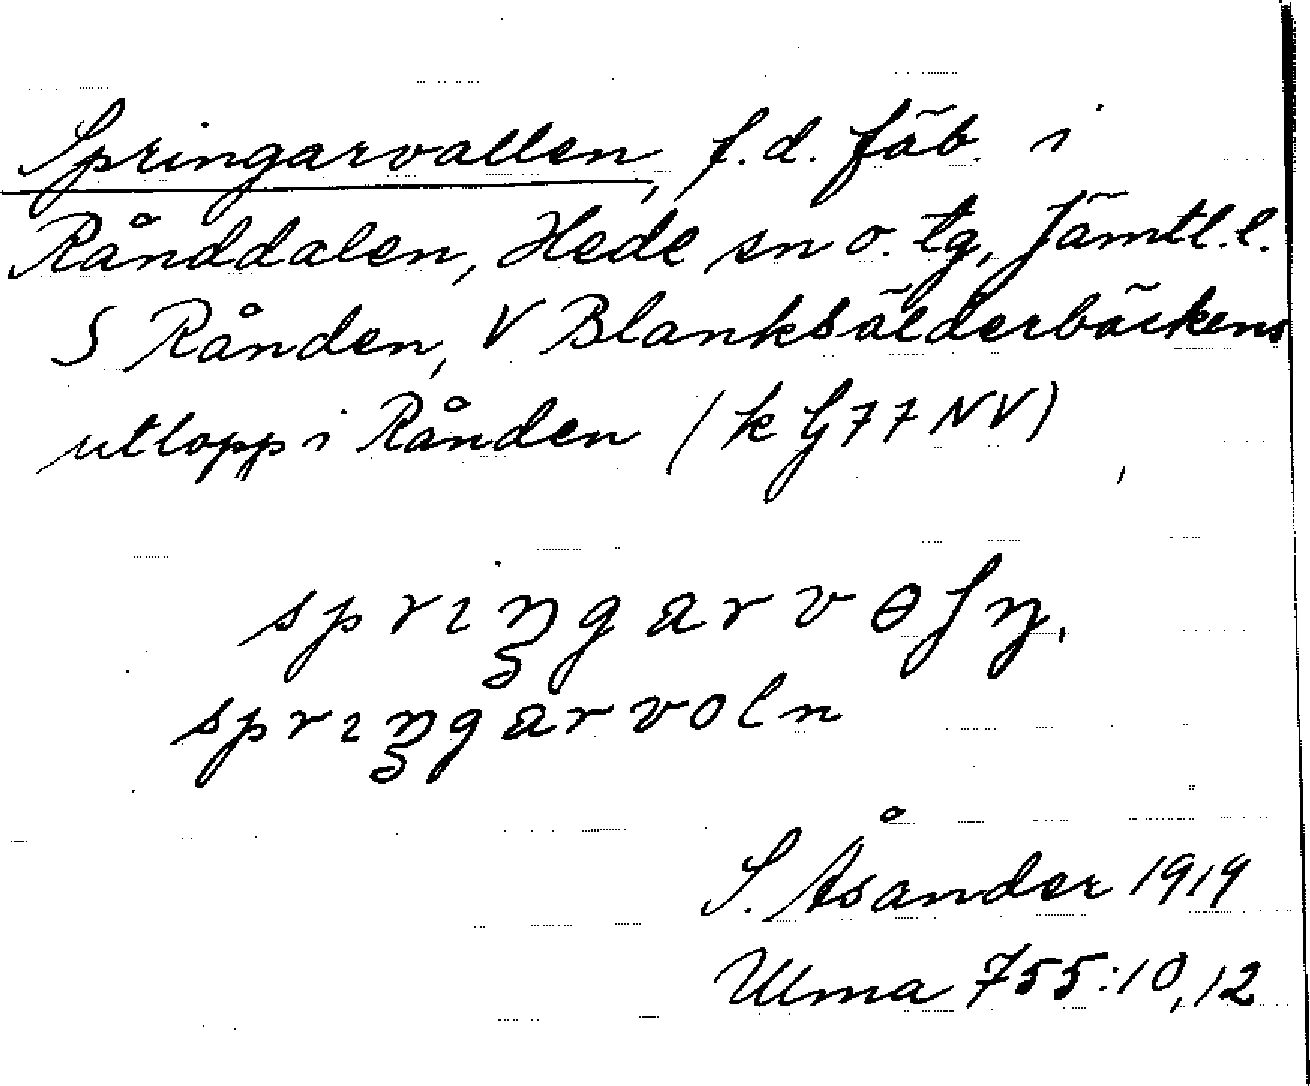 Springarvallen, f.d. fäb. i
Rånddalen, Hede sn o. tg, Jämtl.l.
S Rånden, V Blanksälderbäckens
utlopp i Rånden (k G 77 NV)
sprıŋgarvɵʃn̥.
sprıŋgarvoln
S. Åsander 1919
Ulma 755:10,12